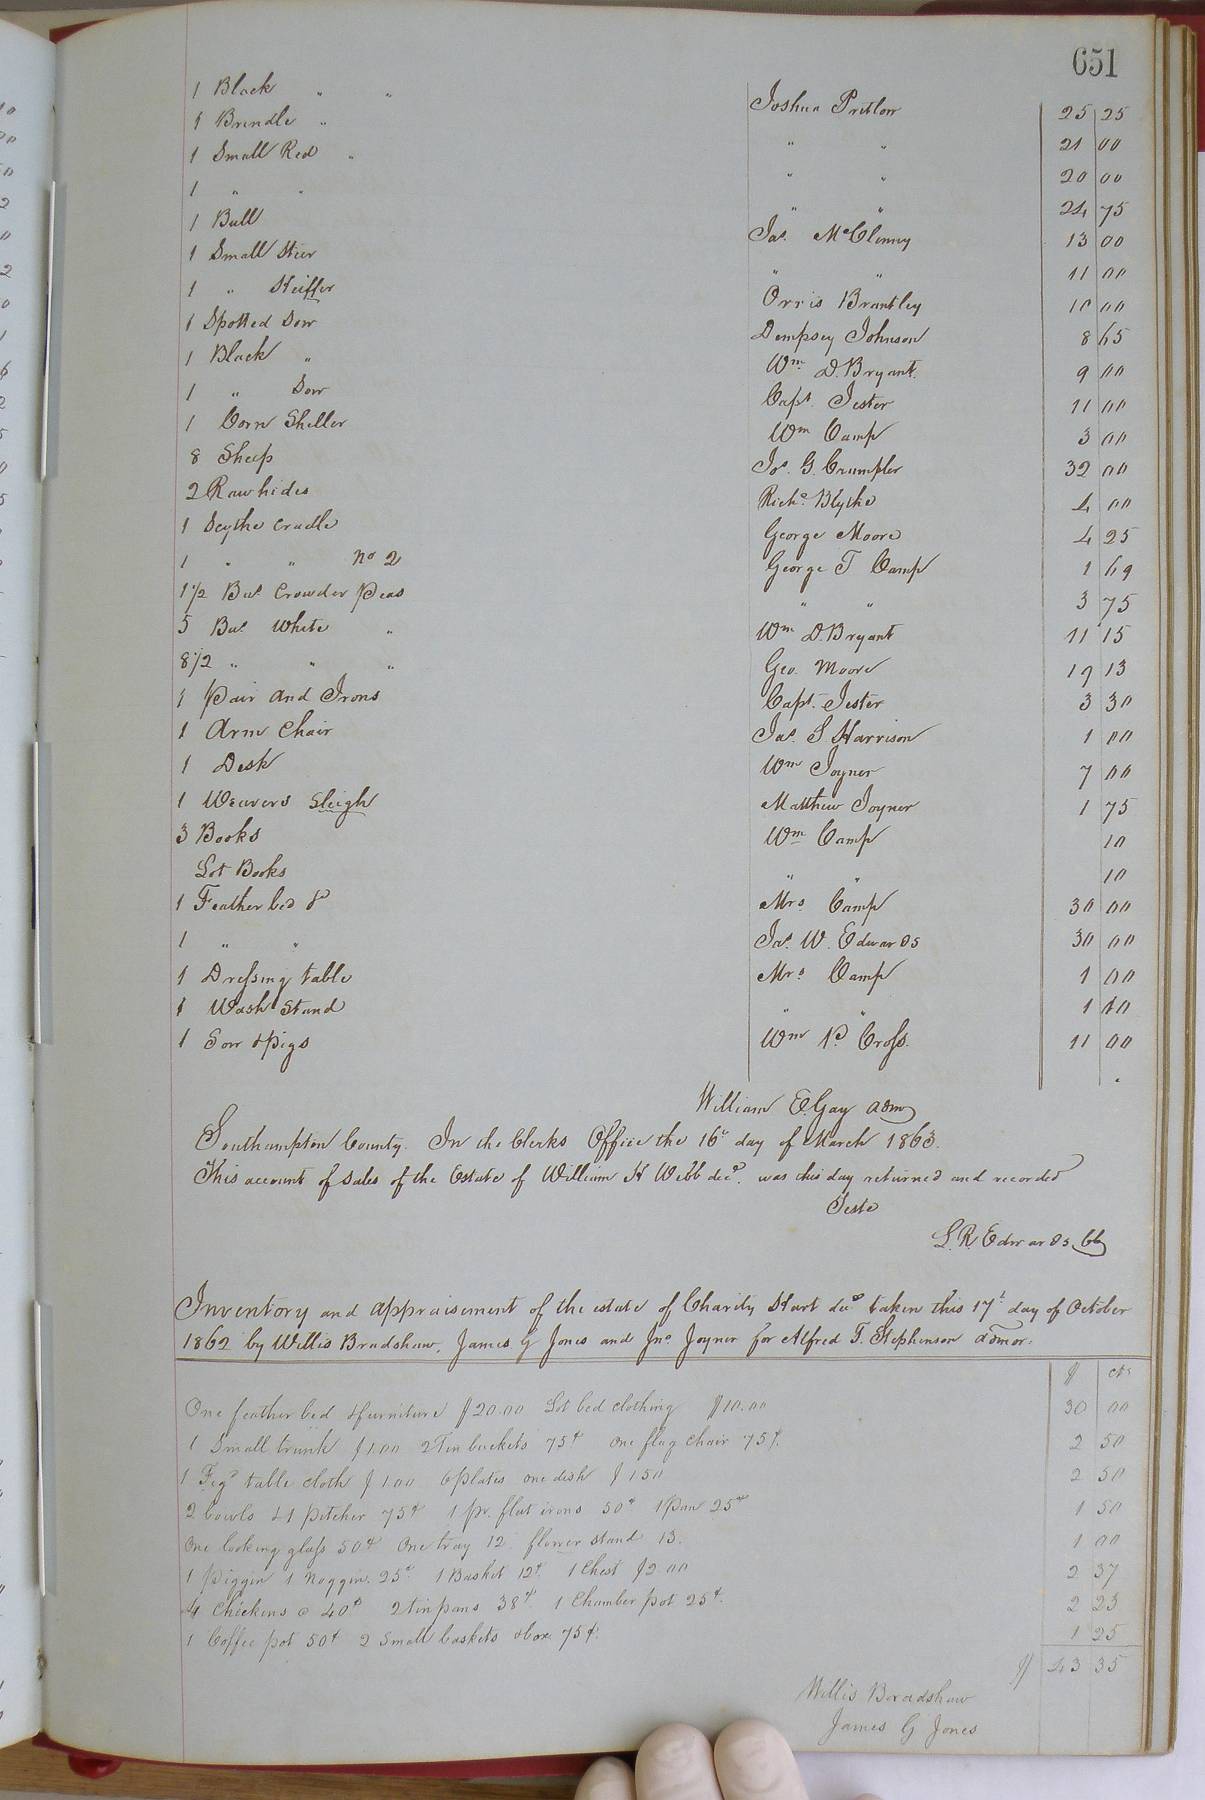 651
1 Black " " Joshua Pretlow 25 25
1 Brindle " " " 21 00
1 Small Red " " " 20 00
1 " " " " 24 75
1 Bull Jas. McClenny 13 00
1 Small Steer " " 11 00
1 " Heiffer Orris Brantley 10 00
1 Spotted Sow Dempsey Johnson 8 65
1 Black " Wm D. Bryant. 9 00
1 " Sow Capt. Jester 11 00
1 Corn Sheller Wm Camp 3 00
8 Sheep Jos. G. Crumpler 32 00
2 Raw hides Richd. Blythe 4 00
1 Scythe Cradle George Moore 4 25
1 " " No 2 George T Camp 1 69
1 1/2 Bus. Crowder Peas " " 3 75
5 Bus. White " Wm D. Bryant 11 15
8 1/2 " " " Geo. Moore 19 13
1 Pair And Irons Capt. Jester 3 30
1 Arm Chair Jas. S. Harrison 1 00
1 Desk Wm Joyner 7 00
1 Weavers Sleigh Matthew Joyner 1 75
3 Books Wm Camp 10
Lot Books " " 10
1 Feather bed & Mrs Camp 30 00
1 " " Jas. W. Edwards 30 00
1 Dressing table Mrs Camp 1 00
1 Wash Stand " " 1 10
1 Sow & Pigs Wm P. Cross. 11 00
William E. Gay adm
Southampton County. In the Clerks Office the 16t day of March 1863.
This account of sales of the Estate of William H Webb decd. was this day returned and recorded
Teste
L. R. Edwards CC
Inventory and appraisement of the estate of Charity Hart decd taken this 17t day of October
1862 by Willis Bradshaw, James G Jones and Jno. Joyner for Alfred T. Stephenson admor.
$ cts
One feather bed & furniture $20.00 Lot bed clothing $10.00 30 00
1 Small trunk $1.00 2 Tin buckets 75¢ one flag chair 75¢. 2 50
1 table cloth $1.00 6 plates one dish $1.50 2 50
2 bowls & 1 pitcher 75¢ 1 pr. flat irons 50¢ 1 Pan 25¢ 1 50
One looking glass 50¢ One tray 12. flower stand 13. 1 00
1 Piggin 1 Noggin. 25¢ 1 Basket 12¢ 1 Chest $2.00 2 37
4 Chickens @ 40¢ 2 tin pans 38¢. 1 Chamber pot 25¢. 2 23
1 Coffee pot 50¢ 2 Small baskets & box 75¢. 1 25
$ 43 35
Willis Bradshaw
James G Jones